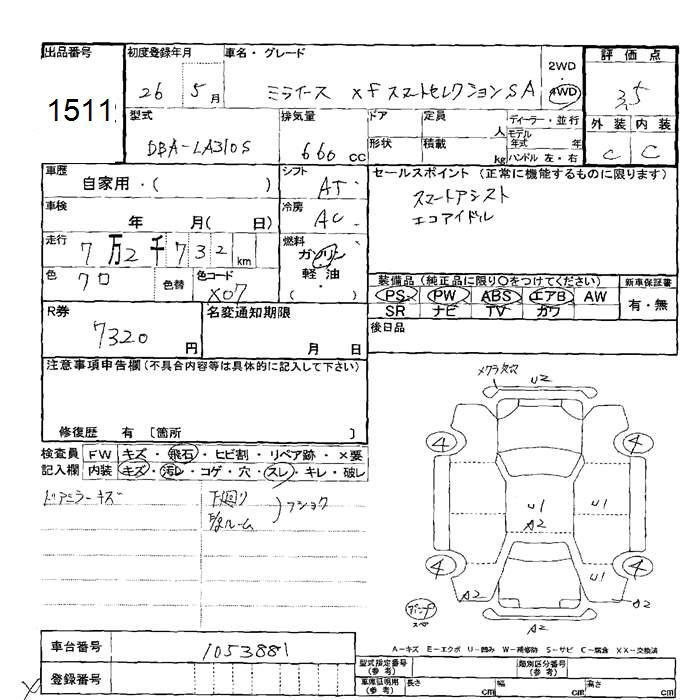 出品番号
1511
初度登録年月
26 5月
車名・グレード
ミライース xf スマートセレクションSA
2WD
・
4WD
評価点
3.5
外装 内装
C C
型式
DBA-LA310S
排気量
660 cc
ドア
形状
定員
人
積載
kg
ディーラー・並行
モデル
年式 年
ハンドル 左・右
車歴
自家用・( )
シフト
AT
セールスポイント (正常に機能するものに限ります)
スマートアシスト
エコアイドル
車検
年 月( 日)
冷房
AC
走行
7万2千732km
燃料
ガソリン
軽・油
( ・ )
色
クロ
色替
色コード
X07
装備品 (純正品に限り〇をつけてください)
PS PW ABS エアB AW
SR ナビ TV カワ
新車保証書
有・無
R券
7320円
名変通知期限
月 日
後日品
注意事項申告欄(不具合内容等は具体的に記入して下さい)
修復歴 有 〔箇所 〕
検査員
記入欄
FW キズ・飛石・ヒビ割・リペア跡・×要
内装 キズ・汚レ・コゲ・穴・スレ・キレ・破レ
ドアミラーキズ
下廻り
ルーム
フショク
メクラ欠
U2
4 4
U1 U1
A2
4 4
U1
A2 A2
A2
スペ
A-キズ E-エクボ U-凹み W-補修跡 S-サビ C-腐食 XX-交換済
車台番号
1053881
登録番号
型式指定番号
(参考)
類別区分番号
(参考)
車庫証明用
(参考)
長さ cm
幅 cm
高さ cm